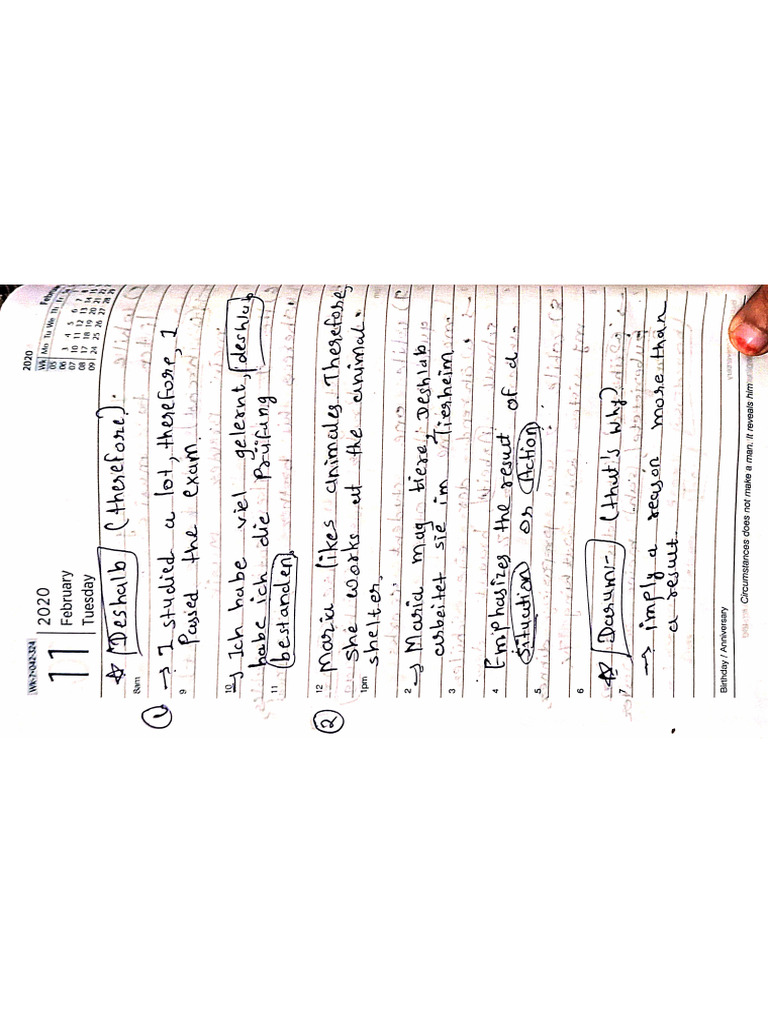 Wk-7•042-324
11
2020
February
Tuesday
2020
Februa
Wk Mo Tu We Th Fr
05
06 3 4 5 6 7
07 10 11 12 13 14
08 17 18 19 20 21
09 24 25 26 27 28
☆ Deshalb (therefore):
8am
① → I studied a lot, therefore, I
9
Passed the exam.
10
→ Ich habe viel gelernt, deshlub
habe ich die Prüfung
11
bestanden.
② 12
Maria likes animales. Therefore,
She works at the animal.
1pm
shelter.
2
→ Maria mag tiere. Deshlab
arbeitet sie im Tiesheim.
3
4
Emphasizes the result of a
situation or Action.
5
6
☆ Darum:- (that's why)
7
→ imply a reason more than
a result.
Birthday / Anniversary
Circumstances does not make a man. It reveals him